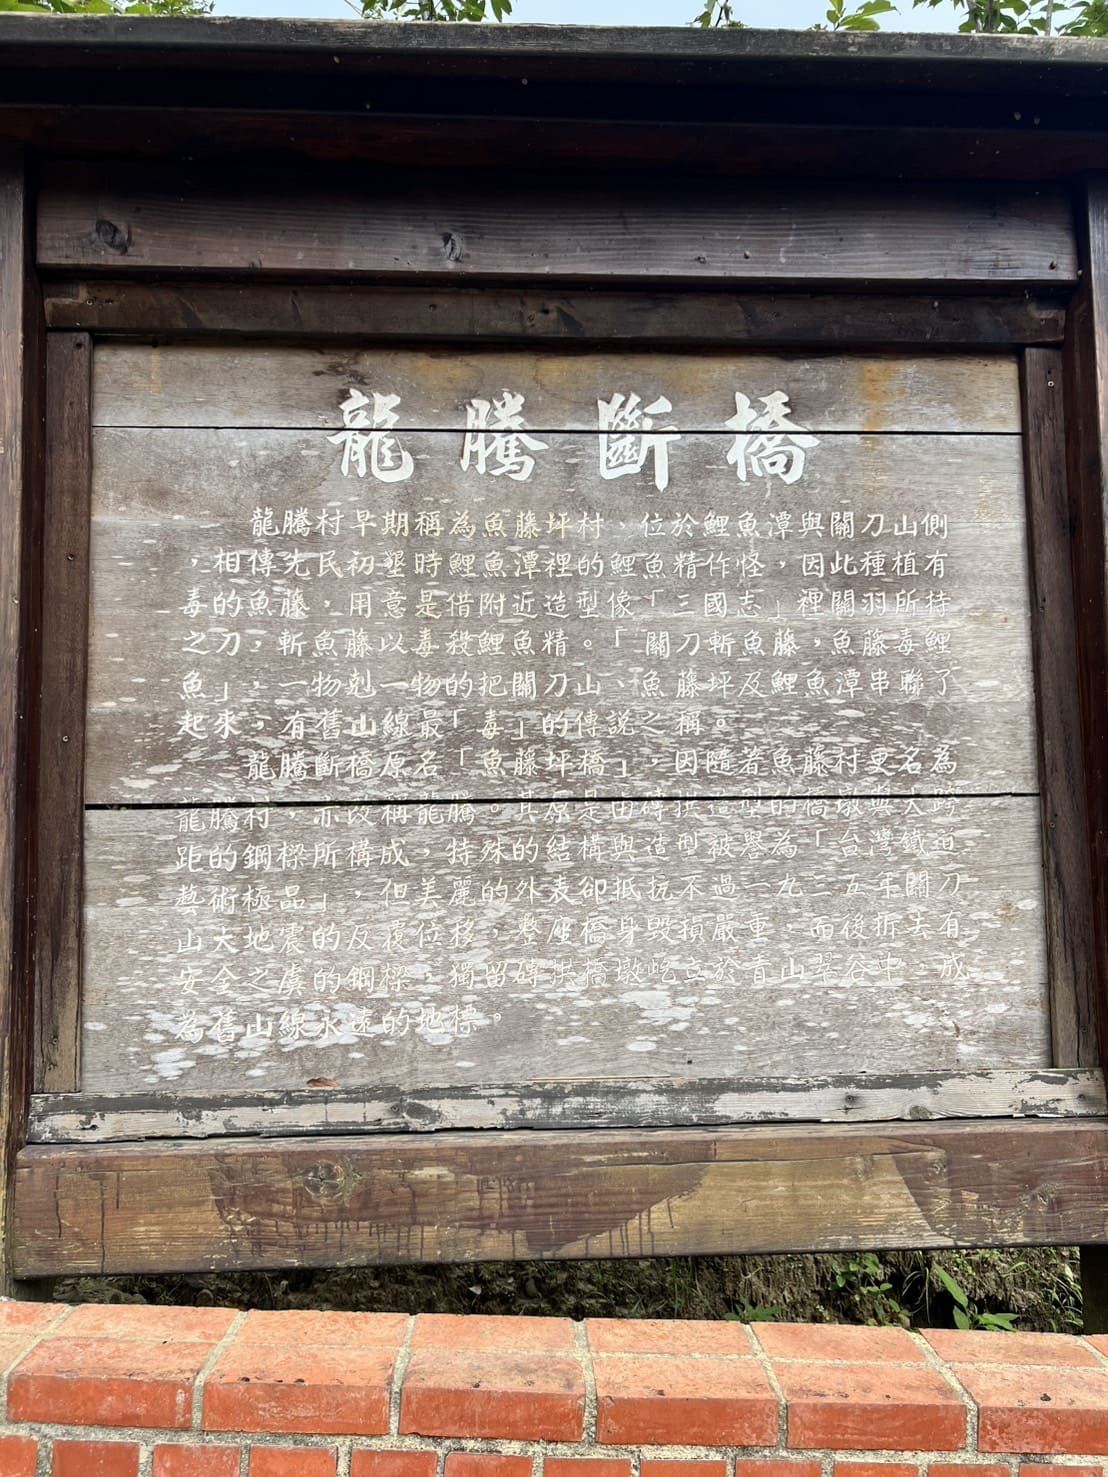 龍騰斷橋
龍騰村早期稱為魚藤坪村、位於鯉魚潭與關刀山側
，相傳先民初墾時鯉魚潭裡的鯉魚精作怪，因此種植有
毒的魚藤，用意是借附近造型像「三國志」裡關羽所持
之刀，斬魚藤以毒殺鯉魚精。「關刀斬魚藤，魚藤毒鯉
魚」，一物剋一物的把關刀山、魚藤坪及鯉魚潭串聯了
起來，有舊山線最「毒」的傳說之稱。
龍騰斷橋原名「魚藤坪橋」，因隨著魚藤村更名為
龍騰村，亦改稱龍騰。其原是由磚拱造型的橋墩與大跨
距的鋼樑所構成，特殊的結構與造型被譽為「台灣鐵道
藝術極品」，但美麗的外表卻抵抗不過一九三五年關刀
山大地震的反覆位移，整座橋身毀損嚴重，而後拆去有
安全之虞的鋼樑，獨留磚拱橋墩屹立於青山翠谷中，成
為舊山線永遠的地標。